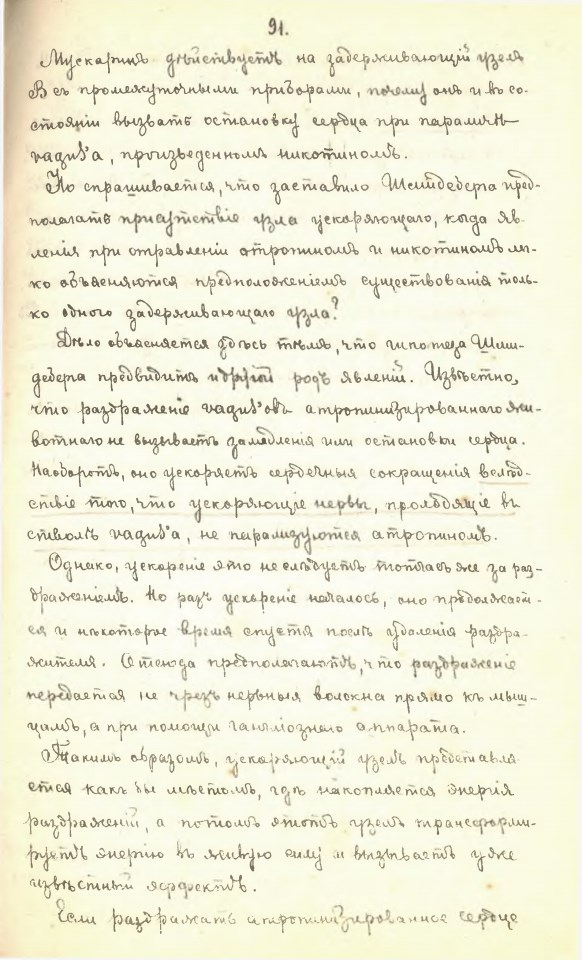 91.
Мускаринъ дѣйствуетъ на задерживающій узелъ
В съ промежуточными приборами, почему онъ и въ со-
стояніи вызвать остановку сердца при параличѣ
vagus'а, произведенномъ никотиномъ.
Но спрашивается, что заставило Шмидеберга пред-
полагать присутствіе узла ускоряющаго, когда яв-
ленія при отравленіи атропиномъ и никотиномъ лег-
ко объясняются предположеніемъ существованія толь-
ко одного задерживающаго узла?
Дѣло объясняется здѣсь тѣмъ, что гипотеза Шми-
деберга предвидитъ и другой родъ явленій. Извѣстно,
что раздраженіе vagus'овъ атропинизированнаго жи-
вотнаго не вызываетъ замедленія или остановки сердца.
Наоборотъ, оно ускоряетъ сердечныя сокращенія вслѣд-
ствіе того, что ускоряющіе нервы, проходящіе въ
стволѣ vagus'а, не парализуются атропиномъ.
Однако, ускореніе это не слѣдуетъ тотчасъ же за раз-
драженіемъ. Но разъ ускореніе началось, оно продолжает-
ся и нѣкоторое время спустя послѣ удаленія раздра-
жителя. Отсюда предполагаютъ, что раздраженіе
передается не чрезъ нервныя волокна прямо къ мыш-
цамъ, а при помощи гангліознаго аппарата.
Такимъ образомъ, ускоряющій узелъ представля-
ется какъ бы мѣстомъ, гдѣ накопляется энергія
раздраженій, а потомъ этотъ узелъ трансформи-
руетъ энергію въ живую силу и вызываетъ уже
извѣстный эффектъ.
Если раздражать атропинизированное сердце